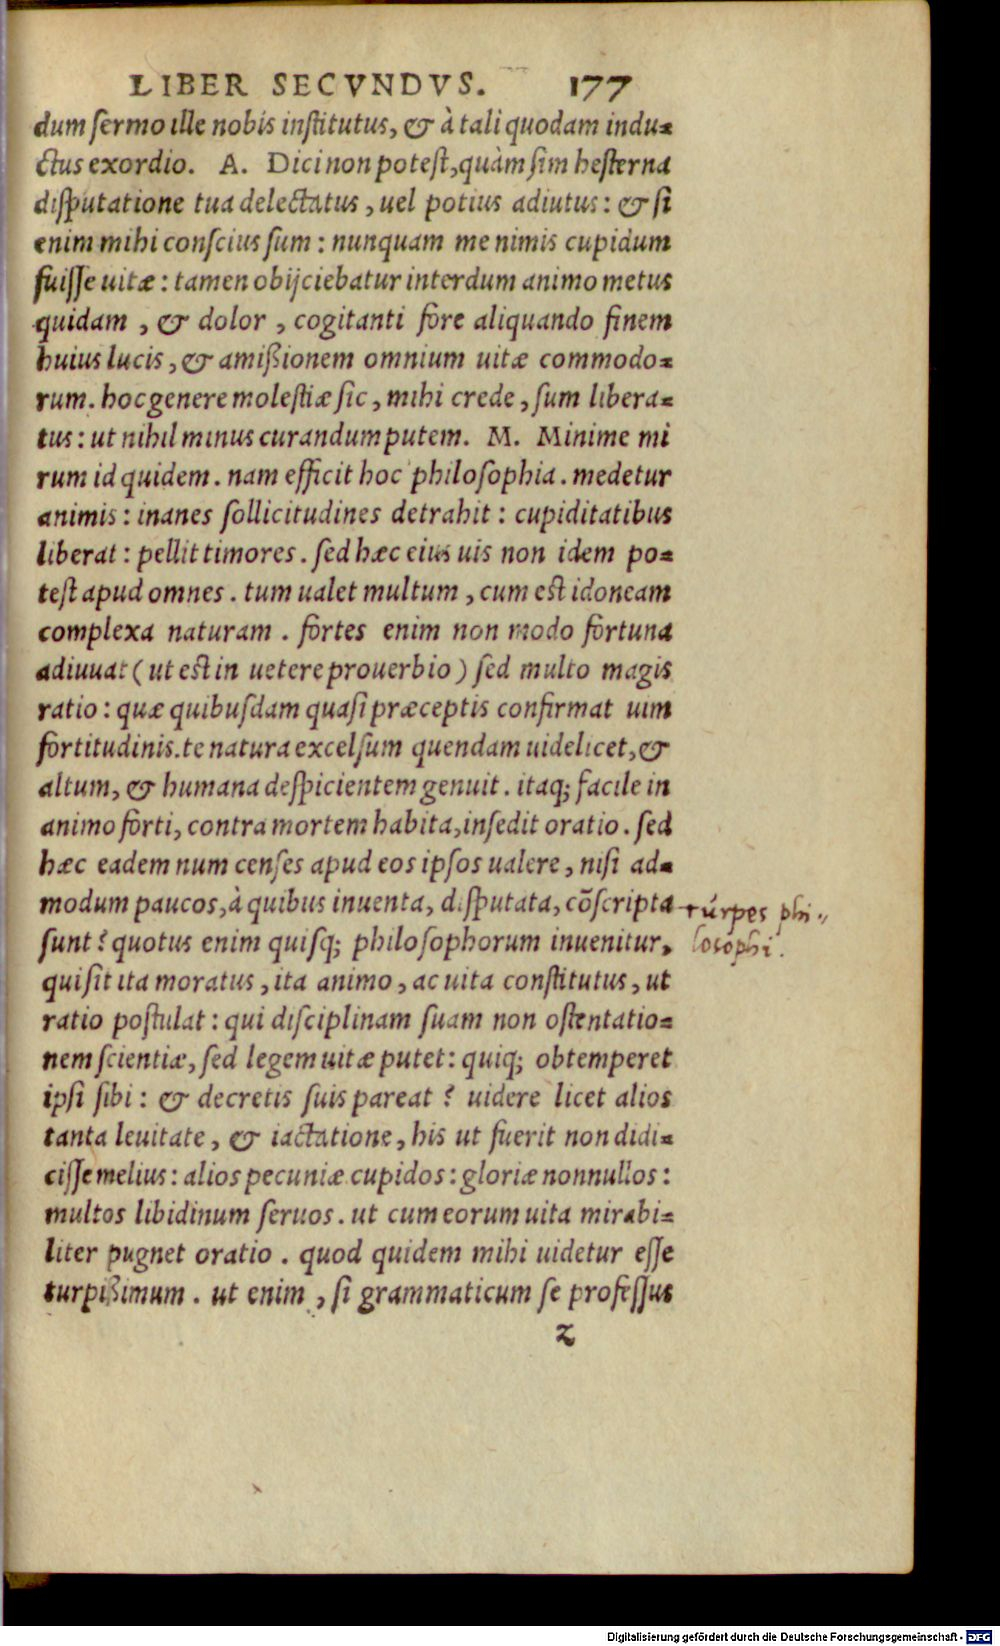 LIBER SECVNDVS. 177
dum sermo ille nobis institutus, & à tali quodam indu-
ctus exordio. A. Dici non potest, quàm sim hesterna
disputatione tua delectatus, uel potius adiutus: & si
enim mihi conscius sum: nunquam me nimis cupidum
fuisse uitæ: tamen obijciebatur interdum animo metus
quidam, & dolor, cogitanti fore aliquando finem
huius lucis, & amißionem omnium uitæ commodo-
rum. hoc genere molestiæ sic, mihi crede, sum libera-
tus: ut nihil minus curandum putem. M. Minime mi
rum id quidem. nam efficit hoc philosophia. medetur
animis: inanes sollicitudines detrahit: cupiditatibus
liberat: pellit timores. sed hæc eius uis non idem po-
test apud omnes. tum ualet multum, cum est idoneam
complexa naturam. fortes enim non modo fortuna
adiuuat (ut est in uetere prouerbio) sed multo magis
ratio: quæ quibusdam quasi præceptis confirmat uim
fortitudinis. te natura excelsum quendam uidelicet, &
altum, & humana despicientem genuit. itaq; facile in
animo forti, contra mortem habita, insedit oratio. sed
hæc eadem num censes apud eos ipsos ualere, nisi ad-
modum paucos, à quibus inuenta, disputata, cõscripta
sunt? quotus enim quisq; philosophorum inuenitur,
qui sit ita moratus, ita animo, ac uita constitutus, ut
ratio postulat: qui disciplinam suam non ostentatio-
nem scientiæ, sed legem uitæ putet: quiq; obtemperet
ipsi sibi: & decretis suis pareat? uidere licet alios
tanta leuitate, & iactatione, his ut fuerit non didi-
cisse melius: alios pecuniæ cupidos: gloriæ nonnullos:
multos libidinum seruos. ut cum eorum uita mirabi-
liter pugnet oratio. quod quidem mihi uidetur esse
turpißimum. ut enim, si grammaticum se professus
z
turpes phi-
losophi.
Digitalisierung gefördert durch die Deutsche Forschungsgemeinschaft - DFG